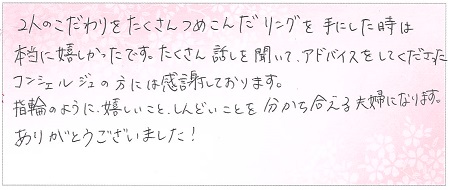 2人のこだわりをたくさんつめこんだリングを手にした時は
本当に嬉しかったです。たくさん話しを聞いて、アドバイスをしてくださった
コンシェルジュの方には感謝しております。
指輪のように、嬉しいこと、しんどいことを分かち合える夫婦になります。
ありがとうございました！